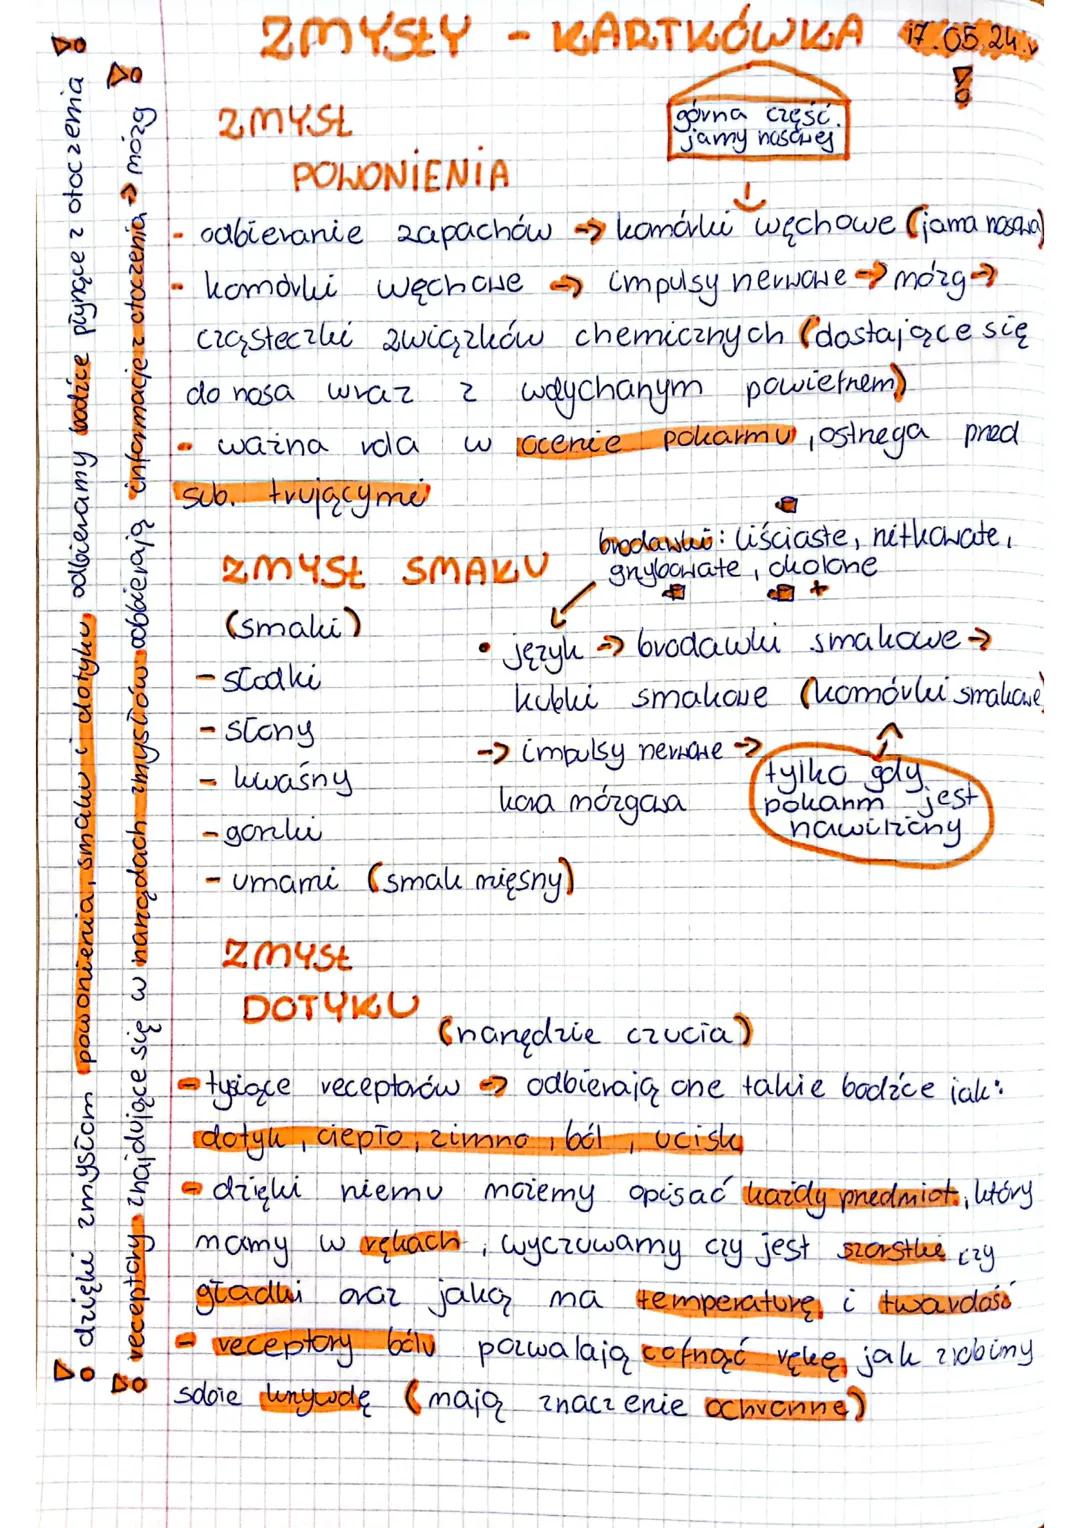 ZMYSŁY - KARTKÓWKA 17.05.24r
górna część
jamy nosowej
ZMYSŁ
POWONIENIA
- odbieranie zapachów → komórki węchowe (jama nosowa)
- komórki węchowe → impulsy nerwowe → mózg →
cząsteczki związków chemicznych (dostające się
do nosa wraz z wdychanym powietrzem)
- ważna rola w ocenie pokarmu, ostrzega przed
sub. trującymi
ZMYSŁ SMAKU
brodawki: liściaste, nitkowate,
grzybowate, okolone
(smaki)
- słodki
- słony
- kwaśny
- gorzki
- umami (smak mięsny)
• język → brodawki smakowe →
kubki smakowe (komórki smakowe)
→ impulsy nerwowe →
kora mózgowa
tylko gdy
pokarm jest
nawilżony
ZMYSŁ
DOTYKU
(narzędzie czucia)
- tysiące receptorów → odbierają one takie bodźce jak:
dotyk, ciepło, zimno, ból, ucisk
- dzięki niemu możemy opisać każdy przedmiot, który
mamy w rękach, wyczuwamy czy jest szorstki czy
gładki oraz jaką ma temperaturę i twardość
- receptory bólu pozwalają cofnąć rękę, jak zrobimy
sobie krzywdę (mają znaczenie ochronne)
dzięki zmysłom powonienia, smaku i dotyku, odbieramy bodźce płynące z otoczenia
receptory znajdujące się w narządach zmysłów odbierają informacje z otoczenia → mózg